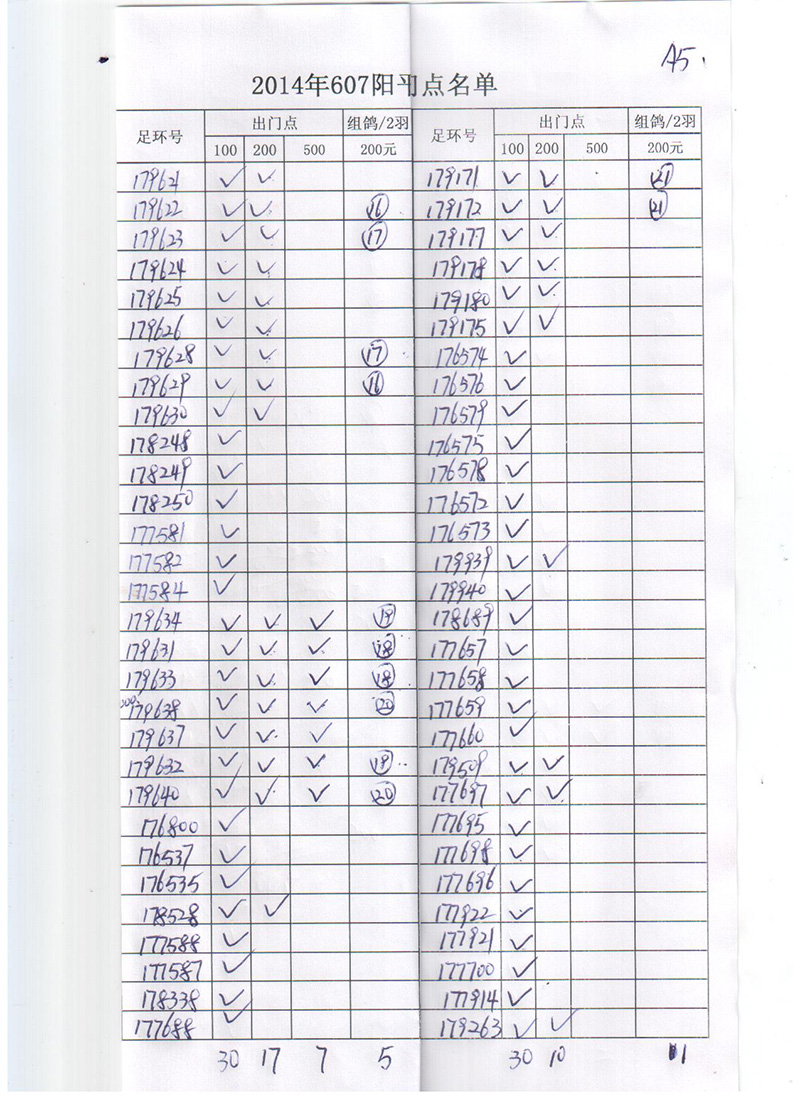 A5.
2014年607阳平点名单
足环号 出门点 组鸽/2羽 足环号 出门点 组鸽/2羽
100 200 500 200元 100 200 500 200元
179621 ✓ ✓ 179171 ✓ ✓ 21
179622 ✓ ✓ 16 179172 ✓ ✓ 21
179623 ✓ ✓ 17 179177 ✓ ✓
179624 ✓ ✓ 179178 ✓ ✓
179625 ✓ ✓ 179180 ✓ ✓
179626 ✓ ✓ 179175 ✓ ✓
179628 ✓ ✓ 17 176574 ✓
179629 ✓ ✓ 16 176576 ✓
179630 ✓ ✓ 176579 ✓
178248 ✓ 176575 ✓
178249 ✓ 176578 ✓
178250 ✓ 176572 ✓
177581 ✓ 176573 ✓
177582 ✓ 179939 ✓ ✓
177584 ✓ 179940 ✓
179634 ✓ ✓ ✓ 19 178689 ✓
179631 ✓ ✓ ✓ 18 177657 ✓
179633 ✓ ✓ ✓ 18 177658 ✓
179638 ✓ ✓ ✓ 20 177659 ✓
179637 ✓ ✓ ✓ 177660 ✓
179632 ✓ ✓ ✓ 19 179509 ✓ ✓
179640 ✓ ✓ ✓ 20 177697 ✓ ✓
176800 ✓ 177695 ✓
176537 ✓ 177698 ✓
176535 ✓ 177696 ✓
178528 ✓ ✓ 177922 ✓
177588 ✓ 177921 ✓
177587 ✓ 177700 ✓
178338 ✓ 177914 ✓
177688 ✓ 179263 ✓ ✓
30 17 7 5 30 10 1